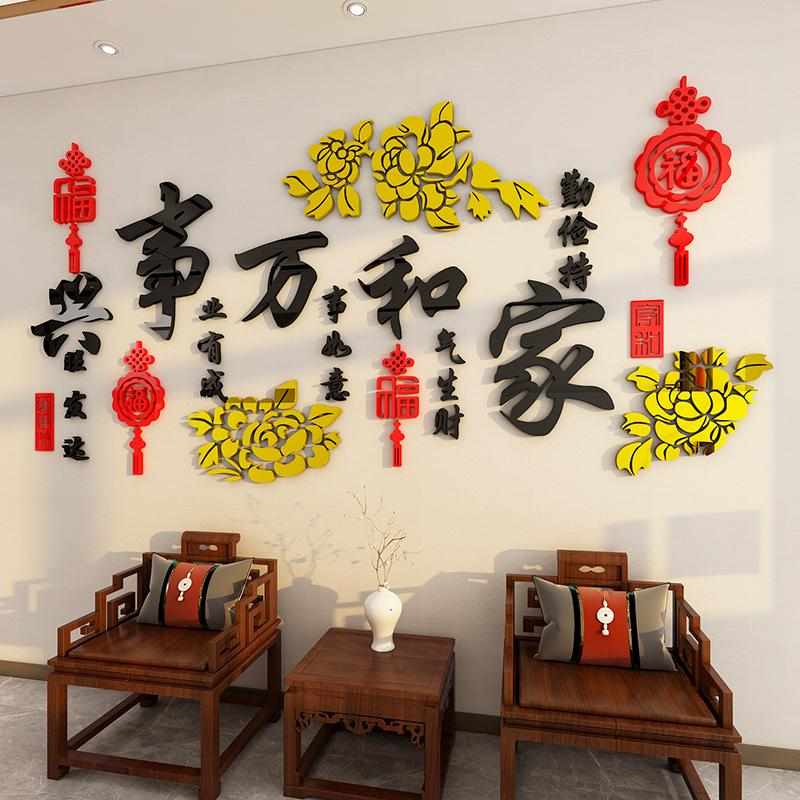 福
勤俭持
家
家和
和
气生财
福
万
事如意
事
业有成
福
福
兴
旺发达